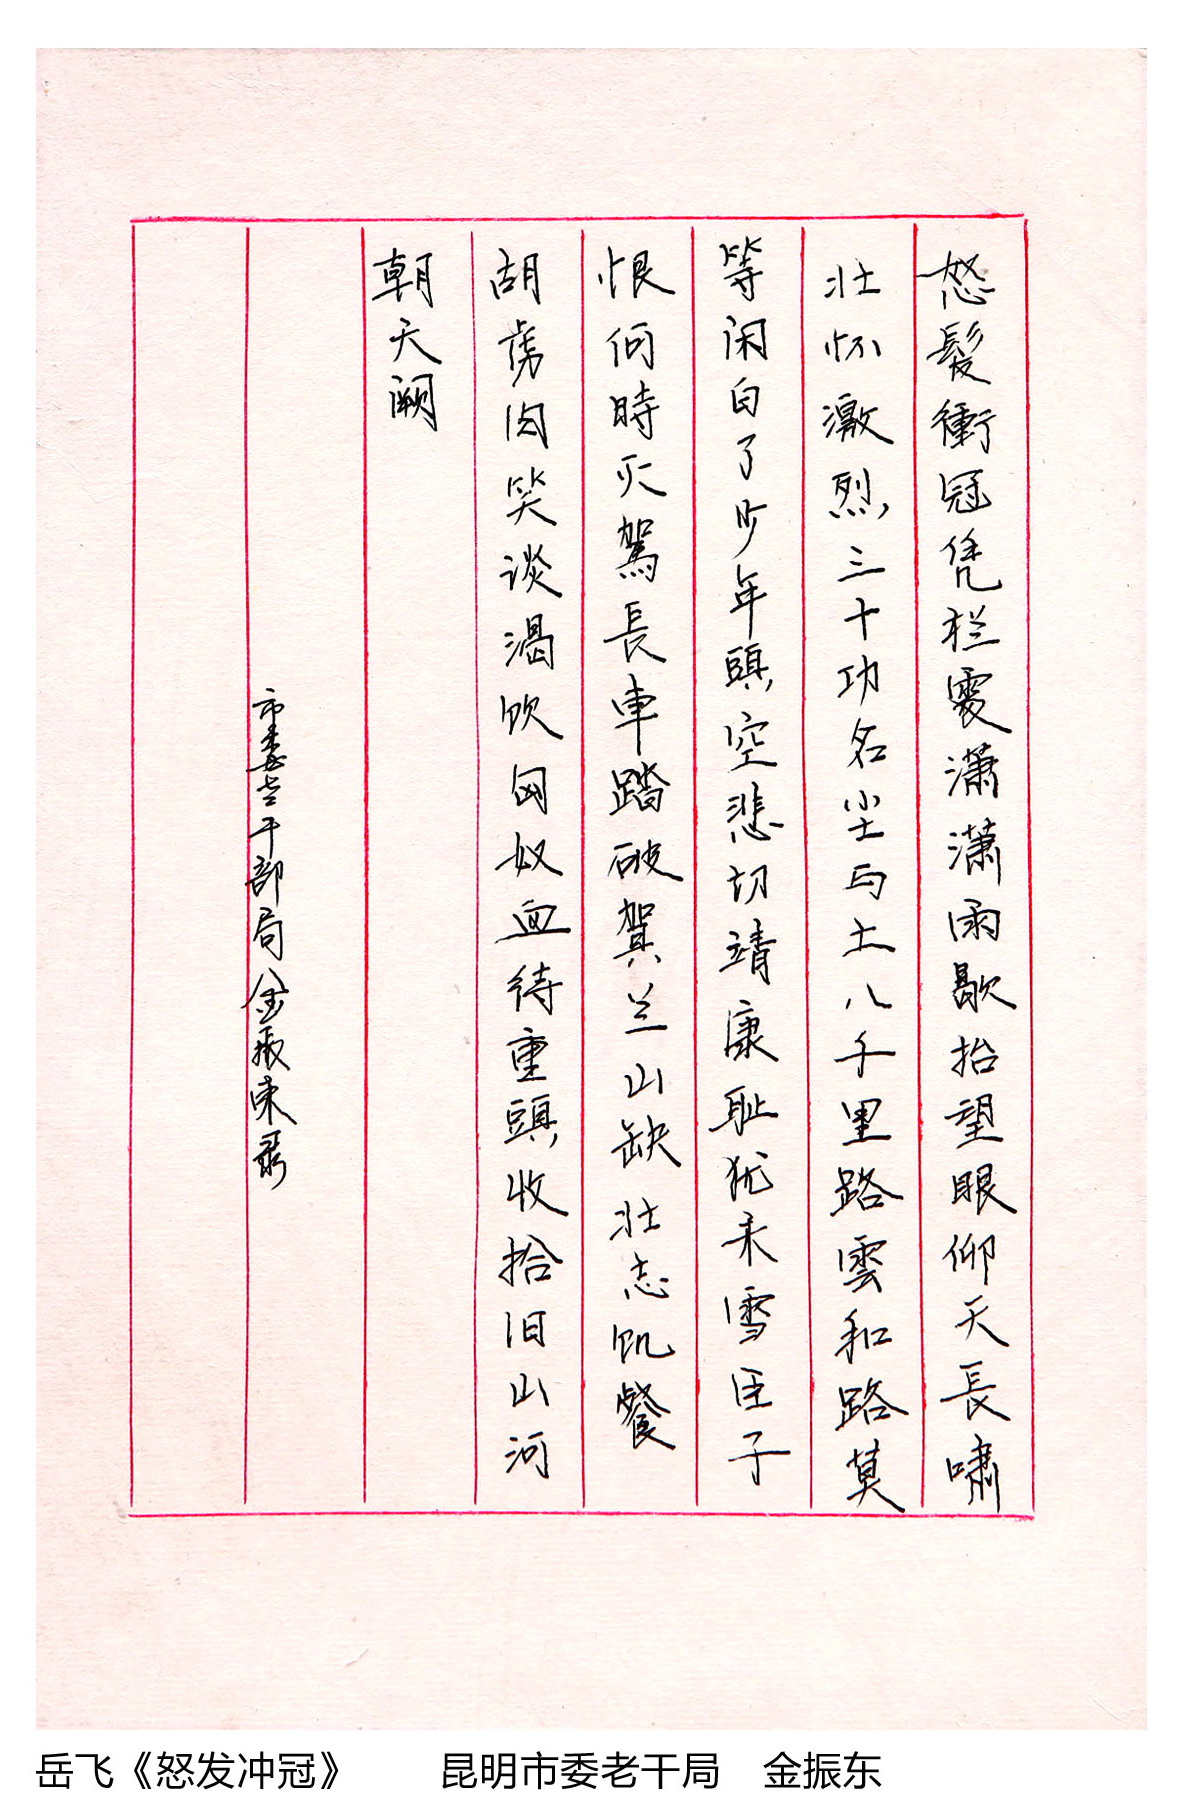 怒髮衝冠凭栏處瀟瀟雨歇抬望眼仰天長嘯
壮怀激烈三十功名尘与土八千里路雲和路莫
等闲白了少年頭空悲切靖康耻犹未雪臣子
恨何時灭駕長車踏破賀兰山缺壮志饥餐
胡虏肉笑谈渴饮匈奴血待重頭收拾旧山河
朝天阙
市委老干部局金振東
岳飞《怒发冲冠》 昆明市委老干局 金振东